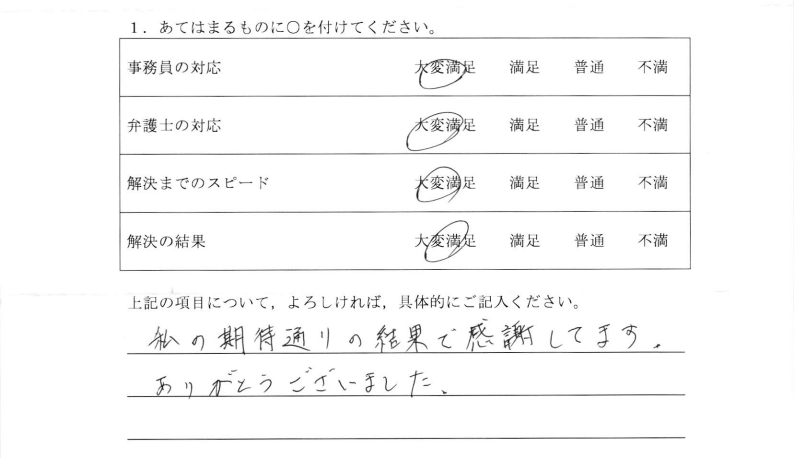 1．あてはまるものに○を付けてください。
事務員の対応 大変満足 満足 普通 不満
弁護士の対応 大変満足 満足 普通 不満
解決までのスピード 大変満足 満足 普通 不満
解決の結果 大変満足 満足 普通 不満
上記の項目について，よろしければ，具体的にご記入ください。
私の期待通りの結果で感謝してます。
ありがとうございました。